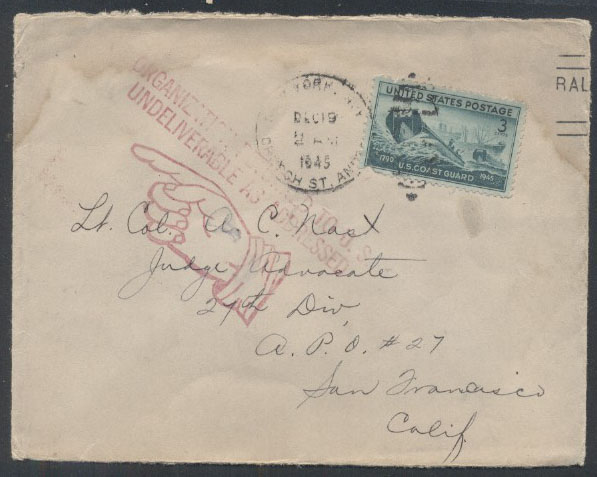 ORGANIZATION RETURNED TO U.S.
UNDELIVERABLE AS ADDRESSED
NEW YORK, N.Y.
DEC 19
1945
CHURCH ST. ANNEX
UNITED STATES POSTAGE
3
1790 U.S. COAST GUARD 1945
RAL
Lt. Col. A. C. Nast
Judge Advocate
24th Div
A.P.O. #27
San Francisco
Calif